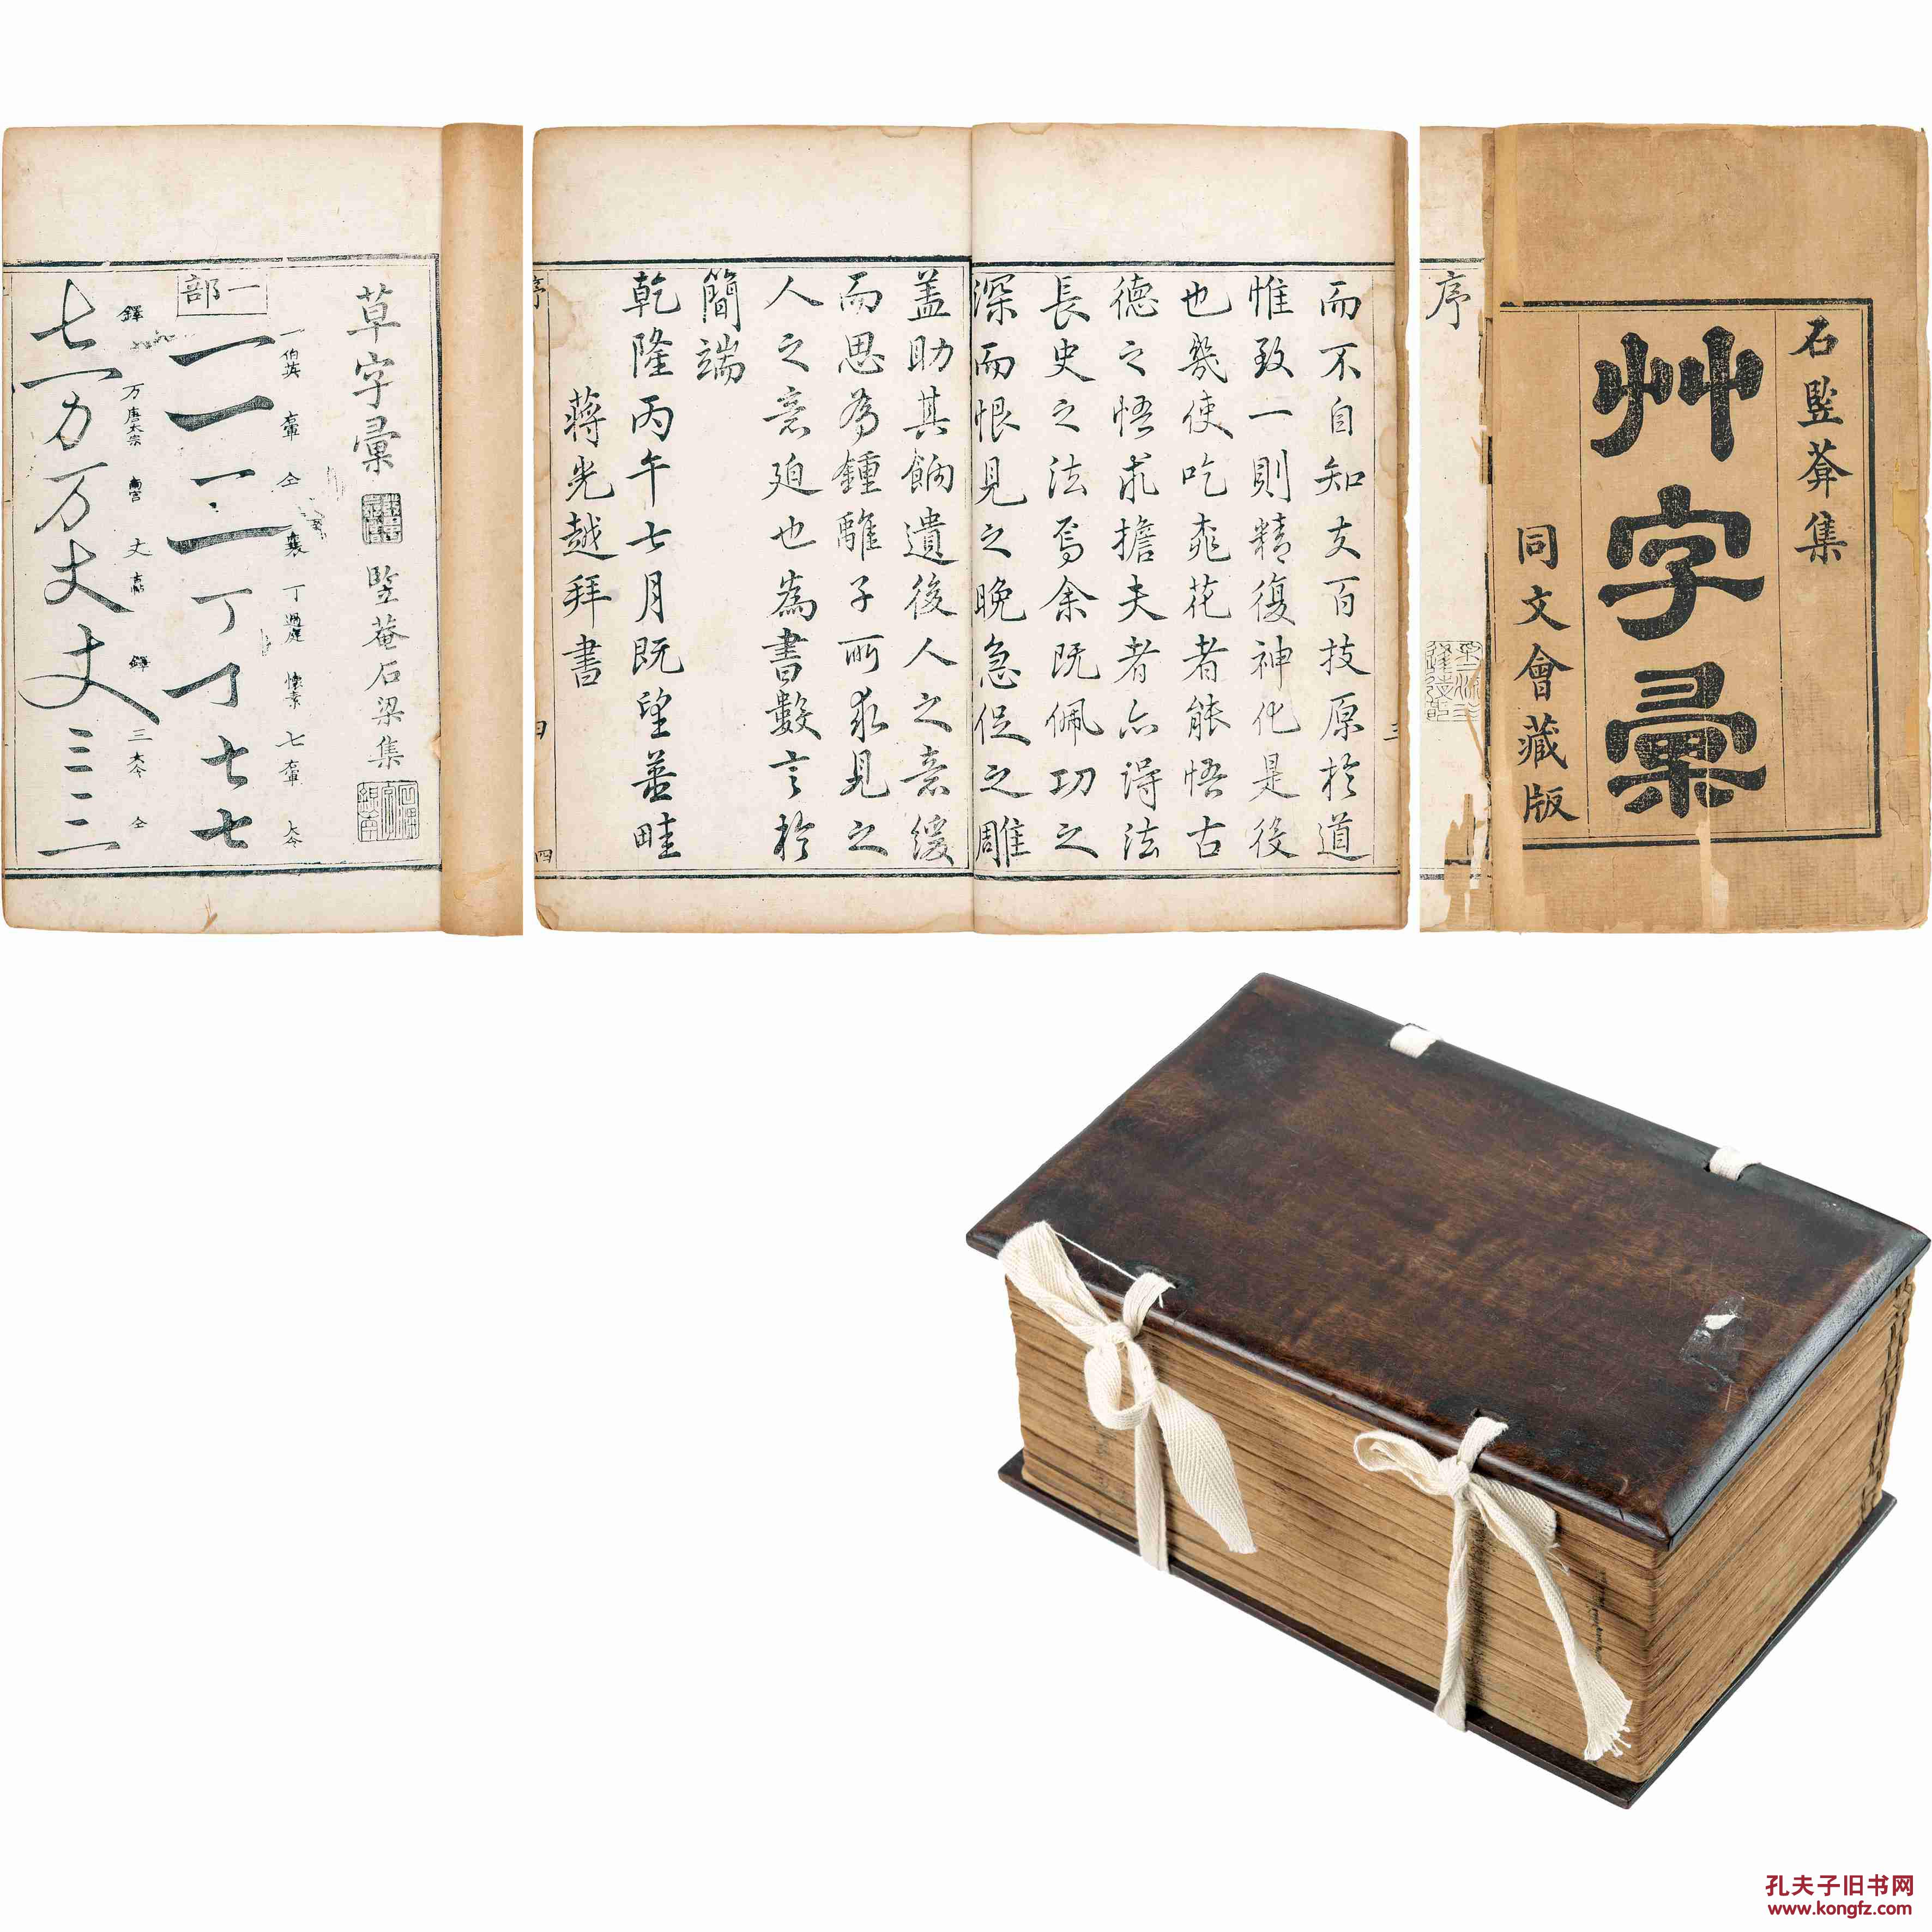 石竪菴集
艸字彙
同文會藏版
序
而不自知夫百技原於道
惟致一則精復神化是後
也幾使吃桃花者能悟古
德之悟求擔夫者亦得法
長史之法焉余既佩功之
深而恨見之晚急促之雕
盖助其餉遺後人之意緩
而思為鍾離子所求見之
人之意廹也為書數言於
簡端
乾隆丙午七月既望蓝畦
蔣光越拜書
序
四
草字彙
竪菴石梁集
一部
一 伯英 右軍 仝 襄 丁 過庭 懷素 七 右軍 大令
一一二二丁丁七七
鐸 万 唐太宗 南宮 丈 鐸 三 大令 仝
七万万丈丈三三
孔夫子旧书网
www.kongfz.com